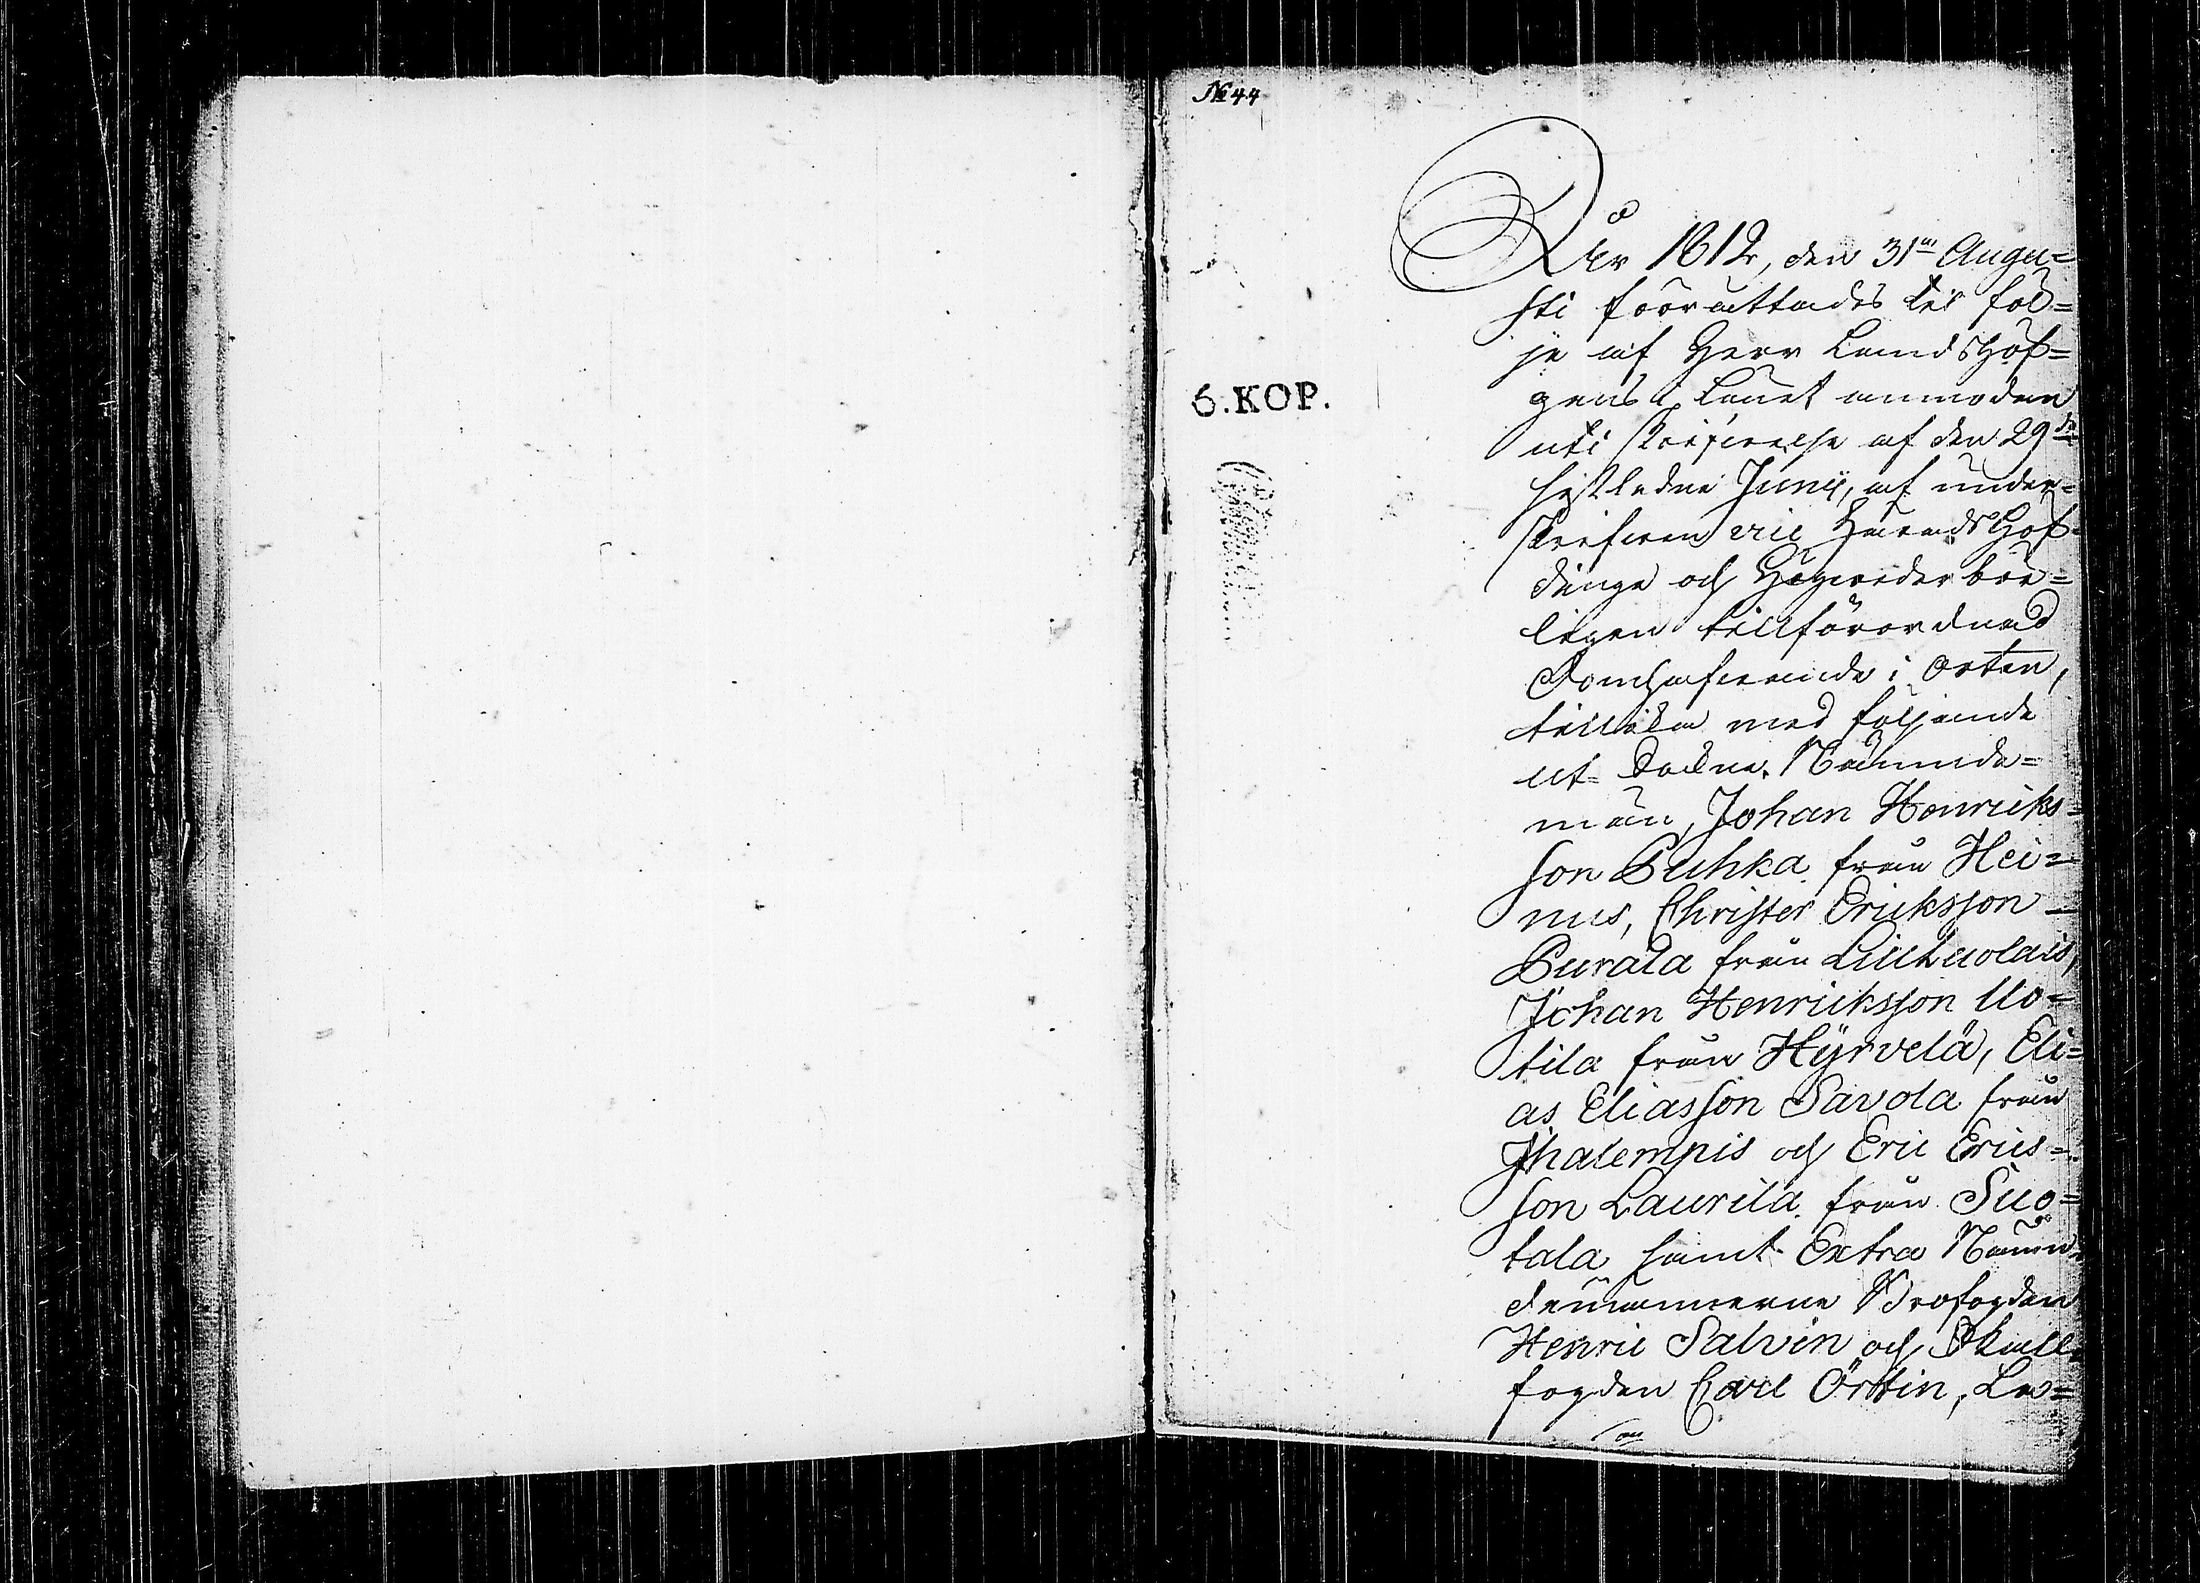 No 44
År 1812, den 31sta Augu=
sti förrättades til föl=
je af Herr Landshöf=
gens i Länet anmodan
uti skrifvelse af den 29de
sistledne Junii, af under=
skrifven vice HäradsHöf=
dinge och Högvederbör=
ligen tillförordnad
Domhafvande i orten,
tillika med följande
ut= Sockne Nämnde=
män, Johan Henriks=
son Puhka från Hei=
nus, Christer Eriksson
Purala från Liuhuolais,
Johan Henriksson Uo=
tila från Hyrvelä, Eli=
as Eliasson Savola från
Jhalempis och Eric Erics=
son Laurila från Suo=
tala samt Extra Nämn=
demännerne Brofogden
Henric Salvin och Skall=
fogden Carl Örttin, La=
6. KOP.